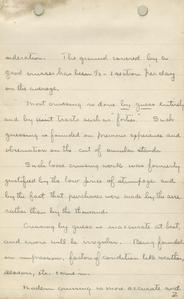 sideration. The ground covered by a
good cruiser has been ½ - 1 section per day
on the average.
Most cruising is done by guess entirely
and by scant tracts such as "forties". Such
guessing is founded on previous experience and
observation on the cut of similar stands.
Such loose cruising work was formerly
justified by the low price of stumpage and
by the fact that purchases were made by the acre
rather than by the thousand.
Cruising by guess is inaccurate at best,
and errors will be irregular. Being founded
on impression, factors of condition like weather,
season, etc. come in.
Modern cruising is more accurate and
2